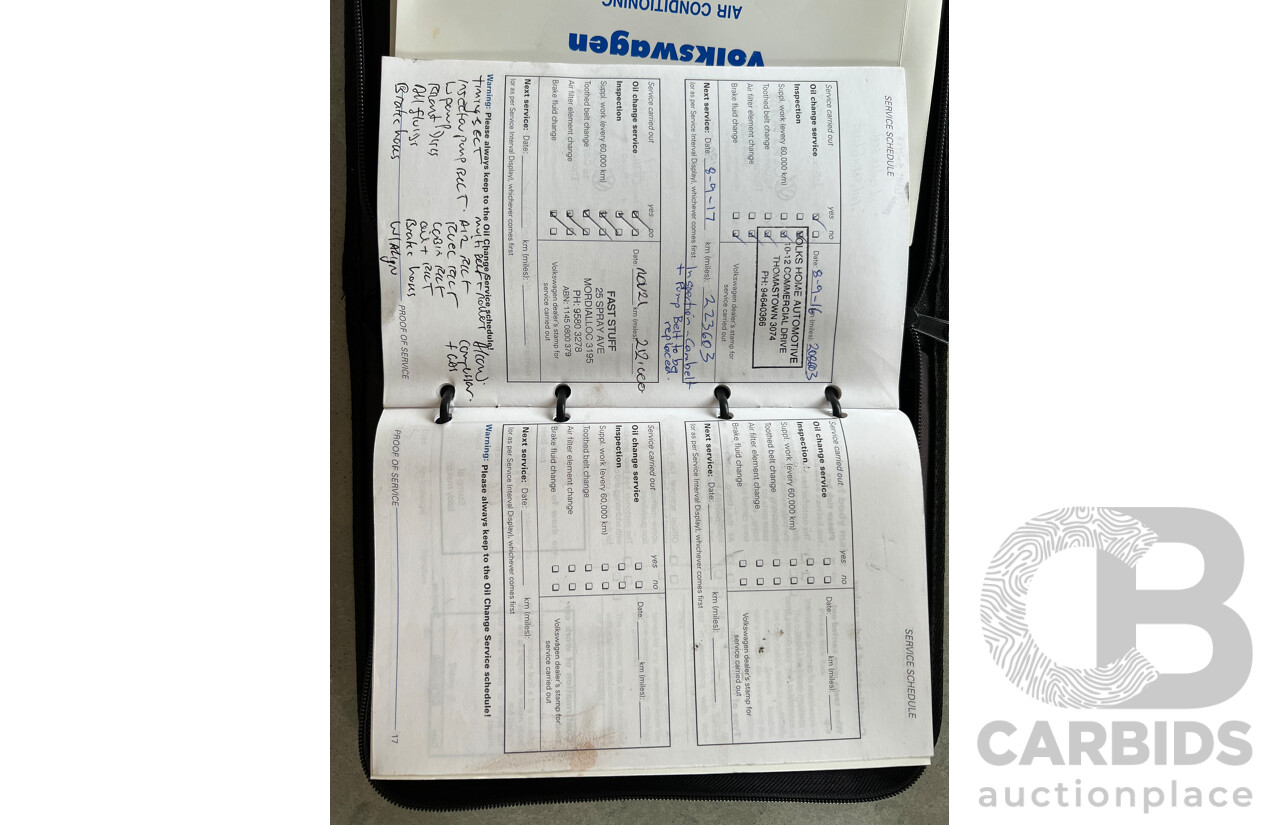 AIR CONDITIONING
Volkswagen
SERVICE SCHEDULE
Service carried out yes no
Oil change service
Inspection
Suppl. work (every 60,000 km)
Toothed belt change
Air filter element change
Brake fluid change
Date: 8-9-16 (miles): 208603
VOLKS HOME AUTOMOTIVE
10-12 COMMERCIAL DRIVE
THOMASTOWN 3074
PH: 94640366
Volkswagen dealer's stamp for
service carried out
Next service: Date: 8-9-17 km (miles): 223603
(or as per Service Interval Display), whichever comes first
Inspection - Cambelt
+ Pump Belt to be
replaced.
Service carried out yes no
Oil change service
Inspection
Suppl. work (every 60,000 km)
Toothed belt change
Air filter element change
Brake fluid change
Date: Nov 21 km (miles):
FAST STUFF
25 SPRAY AVE
MORDIALLOC 3195
PH: 9580 3278
ABN: 1145 0800 379
Volkswagen dealer's stamp for
service carried out
Next service: Date: km (miles):
(or as per Service Interval Display), whichever comes first
Warning: Please always keep to the Oil Change Service schedule!
Timing belt multi belt + roller Aircon
Injector pump Belt. Air Filt compressor.
w pump Fuel Filt + Gas
Cabin Filt
All fluids oil + Filt
Brake hoses Brake hoses
W/Align
PROOF OF SERVICE
SERVICE SCHEDULE
Service carried out yes no
Oil change service
Inspection
Suppl. work (every 60,000 km)
Toothed belt change
Air filter element change
Brake fluid change
Date: km (miles):
Volkswagen dealer's stamp for
service carried out
Next service: Date: km (miles):
(or as per Service Interval Display), whichever comes first
Service carried out yes no
Oil change service
Inspection
Suppl. work (every 60,000 km)
Toothed belt change
Air filter element change
Brake fluid change
Date: km (miles):
Volkswagen dealer's stamp for
service carried out
Next service: Date: km (miles):
(or as per Service Interval Display), whichever comes first
Warning: Please always keep to the Oil Change Service schedule!
PROOF OF SERVICE 17
CB
CARBIDS
auctionplace